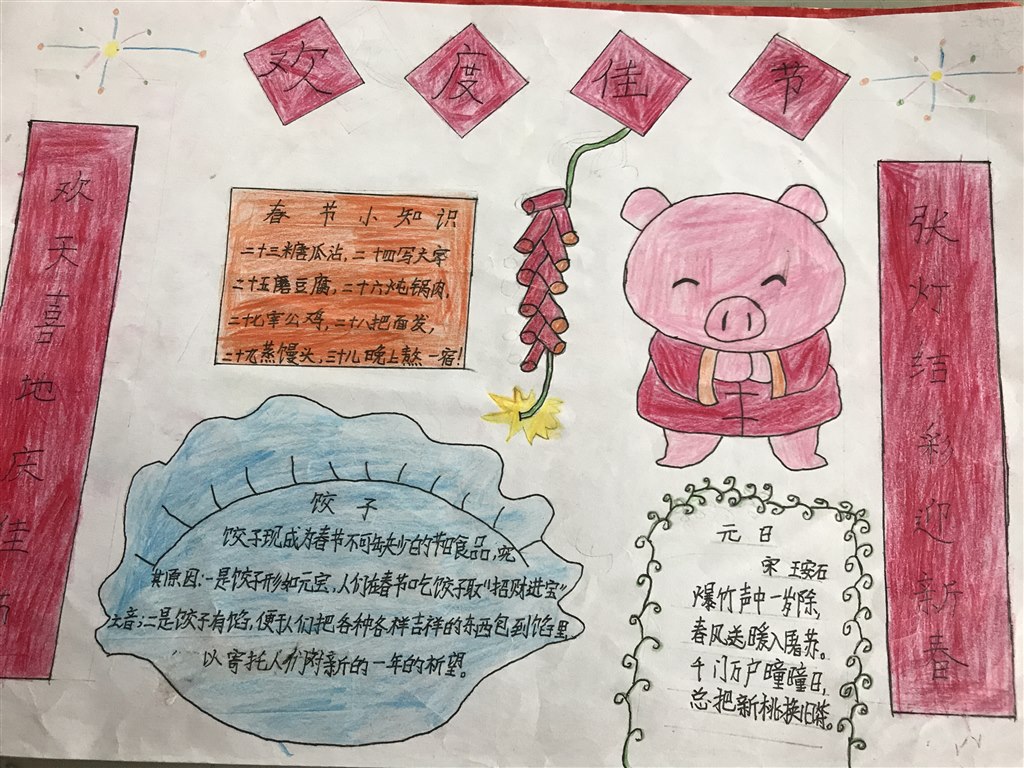 欢度佳节
欢天喜地庆佳节
张灯结彩迎新春
春节小知识
二十三糖瓜沾,二十四写大字
二十五磨豆腐,二十六炖锅肉,
二十七宰公鸡,二十八把面发,
二十九蒸馒头,三十儿晚上熬一宿!
饺子
饺子现成为春节不可缺少的节日食品,究
其原因:一是饺子形如元宝,人们在春节吃饺子取“招财进宝”
之音;二是饺子有馅,便于人们把各种各样吉祥的东西包到馅里
以寄托人们对新的一年的祈望。
元日
宋 王安石
爆竹声中一岁除,
春风送暖入屠苏。
千门万户瞳瞳日,
总把新桃换旧符。